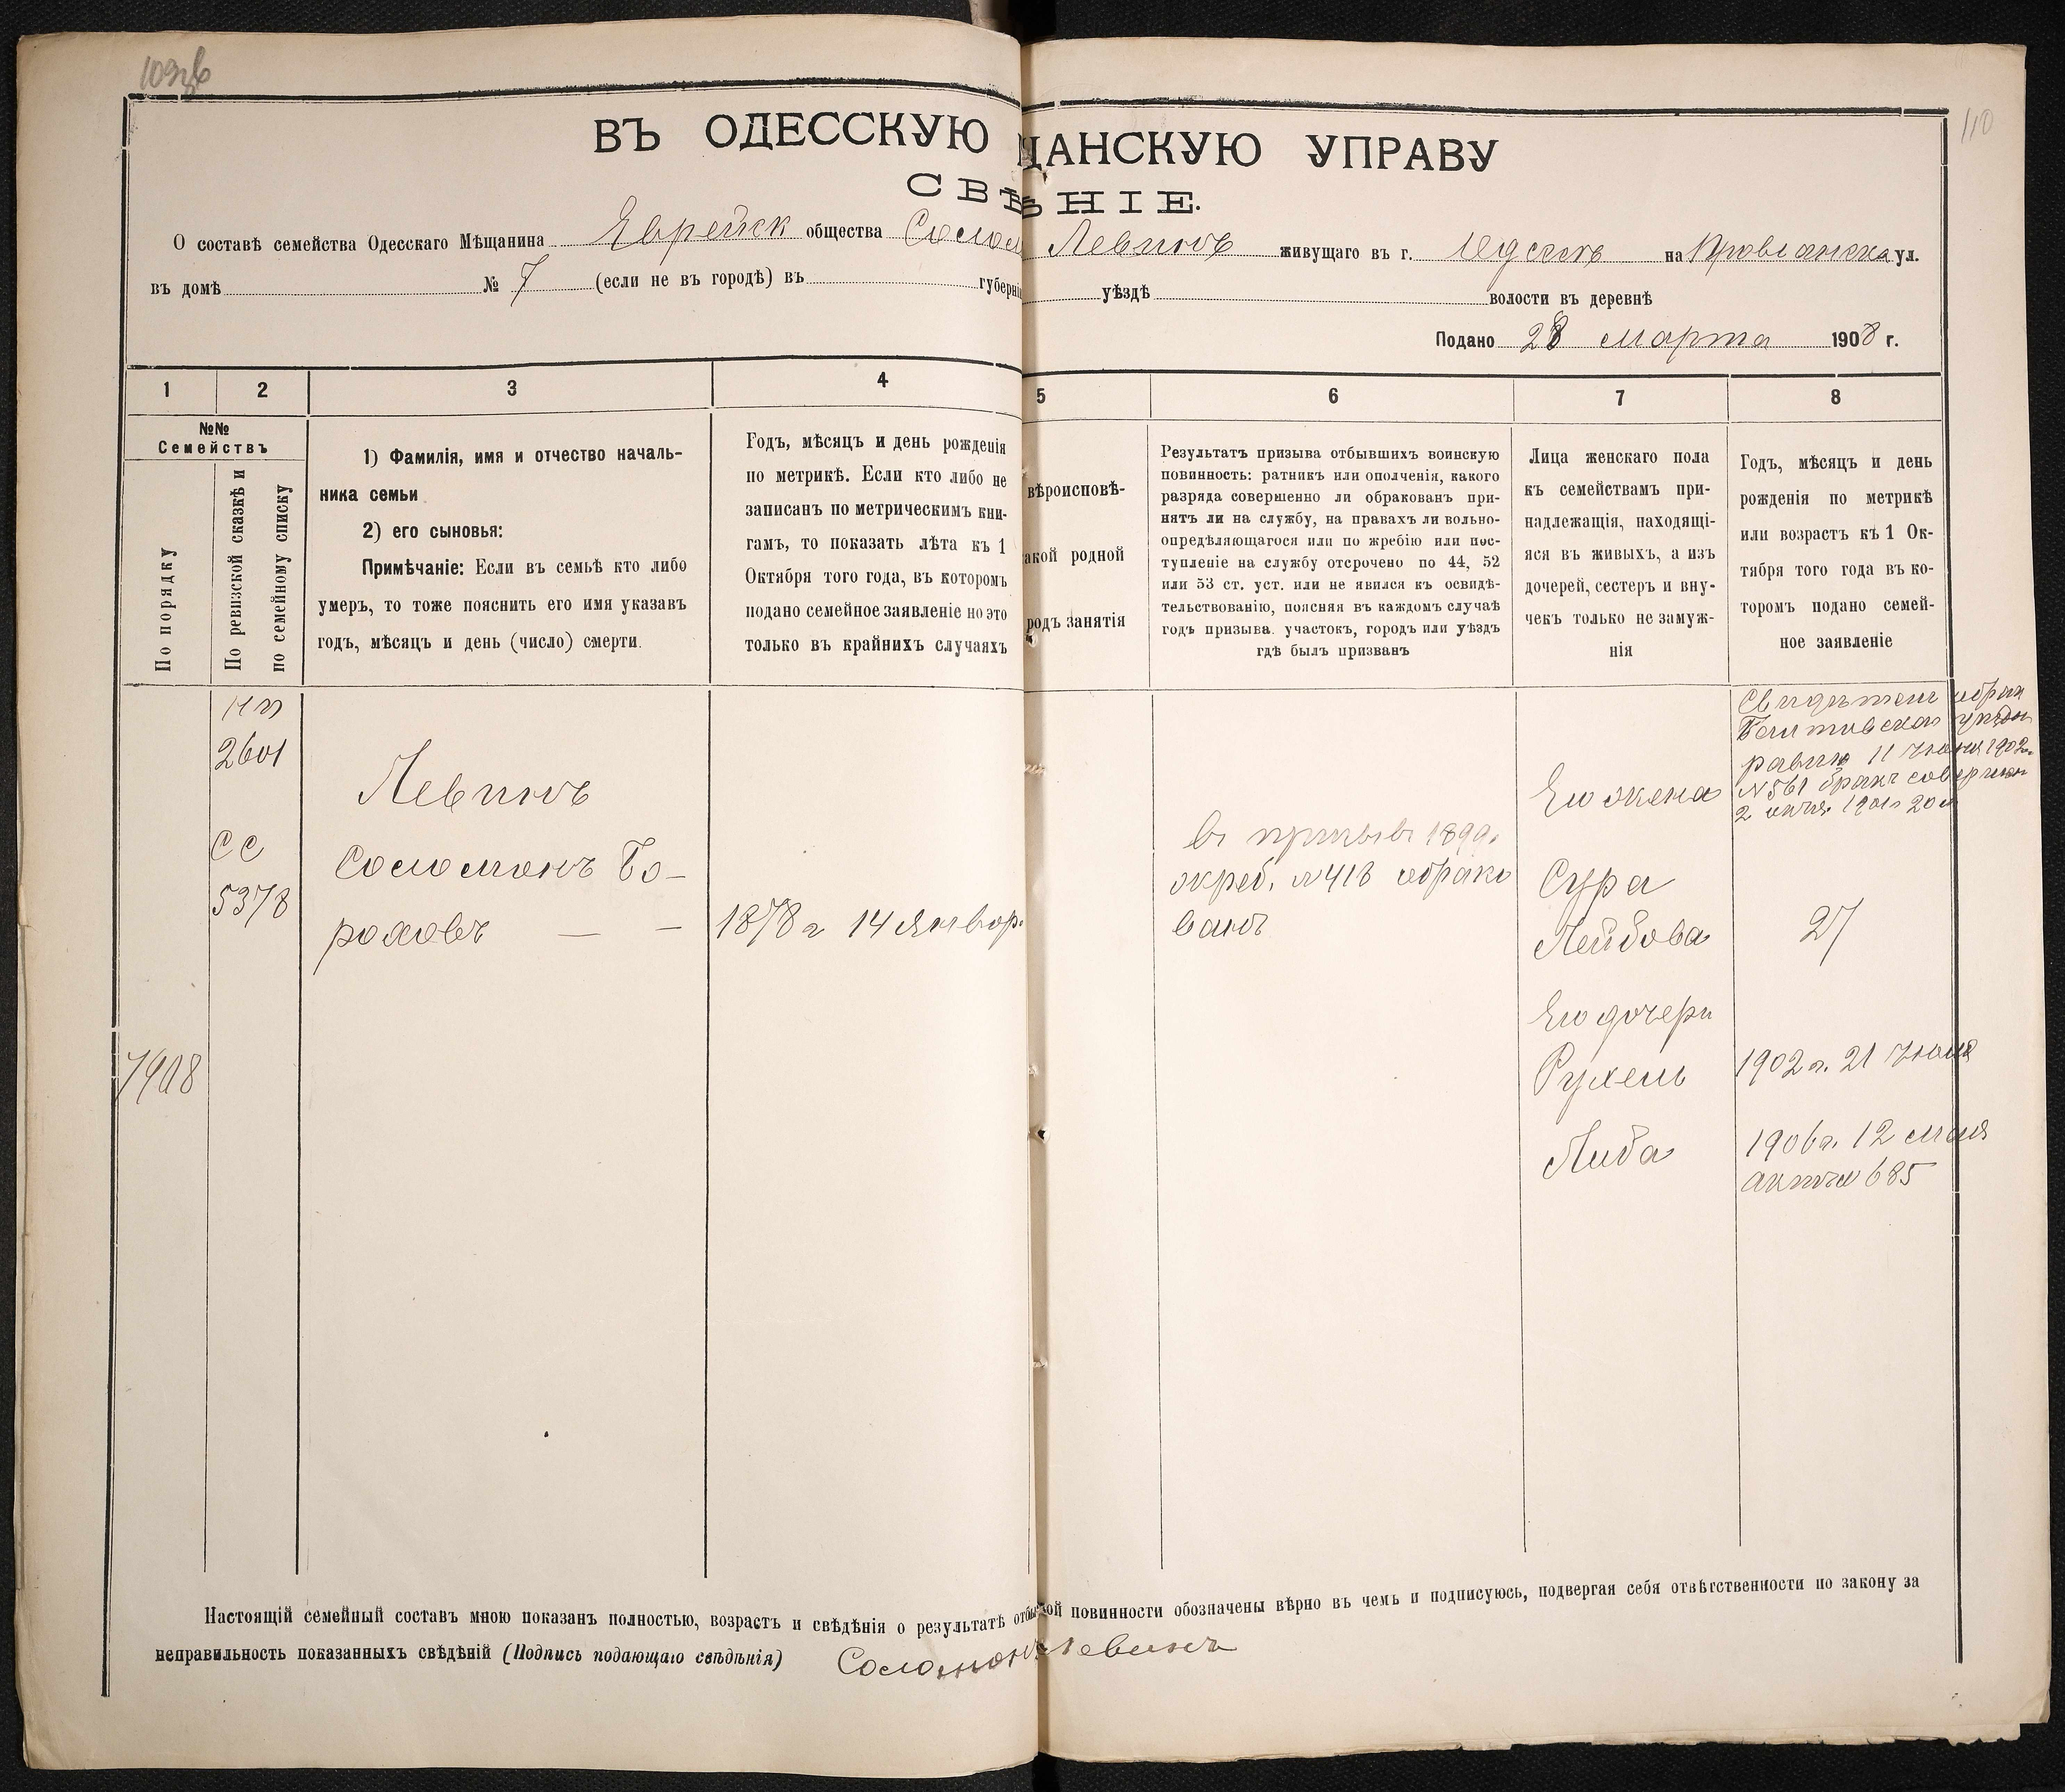 110
ВЪ ОДЕССКУЮ ЩАНСКУЮ УПРАВУ
СВѢ ѢНІЕ.
О составѣ семейства Одесскаго Мѣщанина Еврейск общества Солом Левинъ живущаго въ г. Одессѣ на Провіанска ул.
въ домѣ № 7 (если не въ городѣ) въ губерні уѣздѣ волости въ деревнѣ
Подано 28 марта 1908 г.
1 2 3 4 5 6 7 8
№№
Семействъ
По порядку
По ревизской сказкѣ и
по семейному списку
1) Фамилія, имя и отчество началь-
ника семьи
2) его сыновья:
Примѣчаніе: Если въ семьѣ кто либо
умеръ, то тоже пояснить его имя указавъ
годъ, мѣсяцъ и день (число) смерти.
Годъ, мѣсяцъ и день рожденія
по метрикѣ. Если кто либо не
записанъ по метрическимъ кни-
гамъ, то показать лѣта къ 1
Октября того года, въ которомъ
подано семейное заявленіе но это
только въ крайнихъ случаяхъ
вѣроисповѣ-
акой родной
родъ занятія
Результатъ призыва отбывшихъ воинскую
повинность: ратникъ или ополченія, какого
разряда совершенно ли обракованъ при-
нятъ ли на службу, на правахъ ли вольно-
опредѣляющагося или по жребію или пос-
тупленіе на службу отсрочено по 44, 52
или 53 ст. уст. или не явился къ освидѣ-
тельствованію, поясняя въ каждомъ случаѣ
годъ призыва. участокъ, городъ или уѣздъ
гдѣ былъ призванъ
Лица женскаго пола
къ семействамъ при-
надлежащія, находящі-
яся въ живыхъ, а изъ
дочерей, сестеръ и вну-
чекъ только не замуж-
нія
Годъ, мѣсяцъ и день
рожденія по метрикѣ
или возрастъ къ 1 Ок-
тября того года въ ко-
торомъ подано семей-
ное заявленіе
2601
СС
5378
Левинъ
Соломонъ Бо-
роховъ — —
1878 г 14 январ.
въ призывъ 1899.
жреб. №418 обрако
ванъ
Его жена
Сура
Лейбова
Его дочери
Рухель
Либа
равин 11 Іюня 1902.
№561 бракъ совершен
27
1902 г. 21 Іюня
1906 г. 12 мая
актъ № 685
Настоящій семейный составъ мною показанъ полностью, возрастъ и свѣдѣнія о результатѣ отбы кой повинности обозначены вѣрно въ чемъ и подписуюсь, подвергая себя отвѣтственности по закону за
неправильность показанныхъ свѣдѣній (Подпись подающаго свѣдѣнія) Соломонъ Левинъ